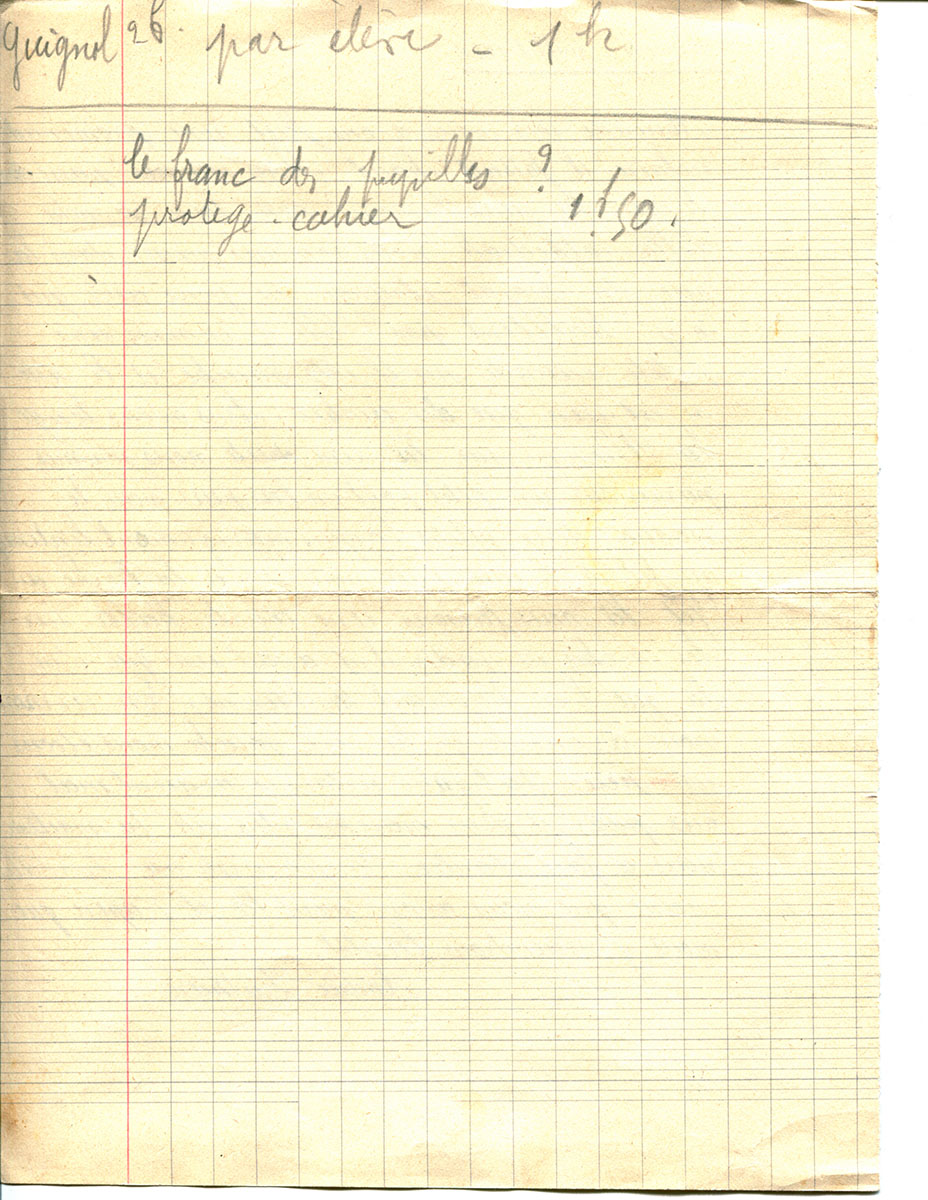 Guignol 2f. par élève - 1 h
le franc des pupilles ?
protege-cahier 1f50.